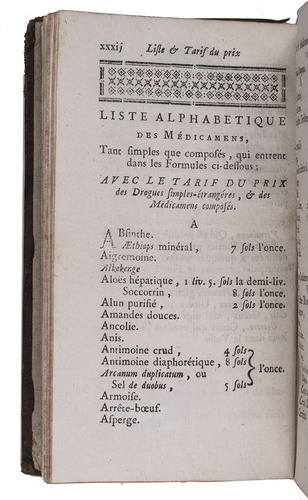 xxxij Liſte & Tarif du prix
LISTE ALPHABETIQUE
DES MÉDICAMENS,
Tant ſimples que compoſés, qui entrent
dans les Formules ci-deſſous ;
AVEC LE TARIF DU PRIX
des Drogues ſimples-étrangéres, & des
Médicamens compoſés.
A
ABſinthe.
Æthiops minéral, 7 ſols l'once.
Aigremoine.
Alkekenge
Aloës hépatique, 1 liv. 5. ſols la demi-liv.
Soccotrin, 8 ſols l'once.
Alun purifié, 2 ſols l'once.
Amandes douces.
Ancolie.
Anis.
Antimoine crud, 4 ſols
Antimoine diaphorétique, 8 ſols
Arcanum duplicatum, ou l'once.
Sel de duobus, 5 ſols
Armoiſe.
Arrête-bœuf.
Aſperge.